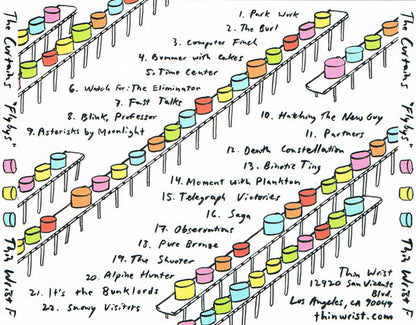 The Curtains "Flybys"
Thin Wrist F
1. Park Work
2. The Burl
3. Computer Finch
4. Bummer with Cakes
5. Time Center
6. Watch for: The Eliminator
7. Fast Talks
8. Blink, Professor
9. Asterisks by Moonlight
10. Hatching The New Guy
11. Partners
12. Death Constellation
13. Ting
14. Moment with Plankton
15. Telegraph Victories
16. Saga
17. Observations
18. Pure Bronze
19. The Shuoter
20. Alpine Hunter
21. It's the Bunklords
22. Snowy Visitors
Thin Wrist
12920 San Vicente
Blvd.
Los Angeles, CA 90049
thinwrist.com
The Curtains "Flybys"
Thin Wrist F